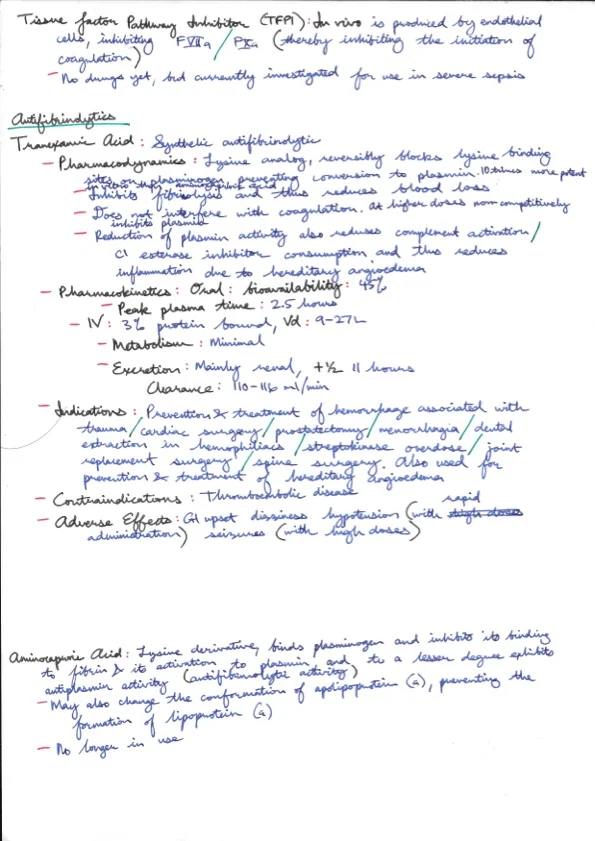 Tissue factor Pathway Inhibitor (TFPI): In vivo is produced by endothelial
cells, inhibiting FVIIa / FXa (thereby inhibiting the initiation of
coagulation)
- No drugs yet, but currently investigated for use in severe sepsis
Antifibrinolytics
Tranexamic Acid: Synthetic antifibrinolytic
- Pharmacodynamics: Lysine analog, reversibly blocks lysine binding
sites on plasminogen, preventing conversion to plasmin. 10 times more potent
in vitro than aminocaproic acid
- Inhibits fibrinolysis and thus reduces blood loss
- Does not interfere with coagulation. At higher doses noncompetitively
inhibits plasmin
- Reduction of plasmin activity also reduces complement activation/
C1 esterase inhibitor consumption and thus reduces
inflammation due to hereditary angioedema
- Pharmacokinetics: Oral: bioavailability: 45%
- Peak plasma time: 2.5 hours
- IV: 3% protein bound, Vd: 9-27L
- Metabolism: Minimal
- Excretion: Mainly renal, t½ 11 hours
Clearance: 110-116 ml/min
- Indications: Prevention & treatment of hemorrhage associated with
trauma/cardiac surgery/prostatectomy/menorrhagia/dental
extraction in hemophiliacs/streptokinase overdose/joint
replacement surgery/spine surgery. Also used for
prevention & treatment of hereditary angioedema
- Contraindications: Thromboembolic disease
- Adverse Effects: GI upset dizziness hypotension (with rapid
administration) seizures (with high doses)
Aminocaproic Acid: Lysine derivative, binds plasminogen and inhibits its binding
to fibrin & its activation to plasmin and to a lesser degree exhibits
antiplasmin activity (antifibrinolytic activity)
- May also change the conformation of apolipoprotein (a), preventing the
formation of lipoprotein (a)
- No longer in use